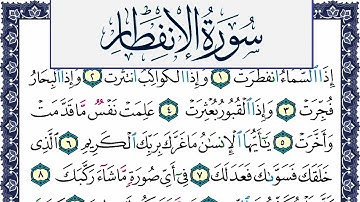 سُورَةُ الْإِنفِطَارِ
إِذَا ٱلسَّمَآءُ ٱنفَطَرَتْ ١ وَإِذَا ٱلْكَوَاكِبُ ٱنتَثَرَتْ ٢ وَإِذَا ٱلْبِحَارُ
فُجِّرَتْ ٣ وَإِذَا ٱلْقُبُورُ بُعْثِرَتْ ٤ عَلِمَتْ نَفْسٌ مَّا قَدَّمَتْ
وَأَخَّرَتْ ٥ يَٰٓأَيُّهَا ٱلْإِنسَٰنُ مَا غَرَّكَ بِرَبِّكَ ٱلْكَرِيمِ ٦ ٱلَّذِى
خَلَقَكَ فَسَوَّىٰكَ فَعَدَلَكَ ٧ فِىٓ أَىِّ صُورَةٍ مَّا شَآءَ رَكَّبَكَ ٨